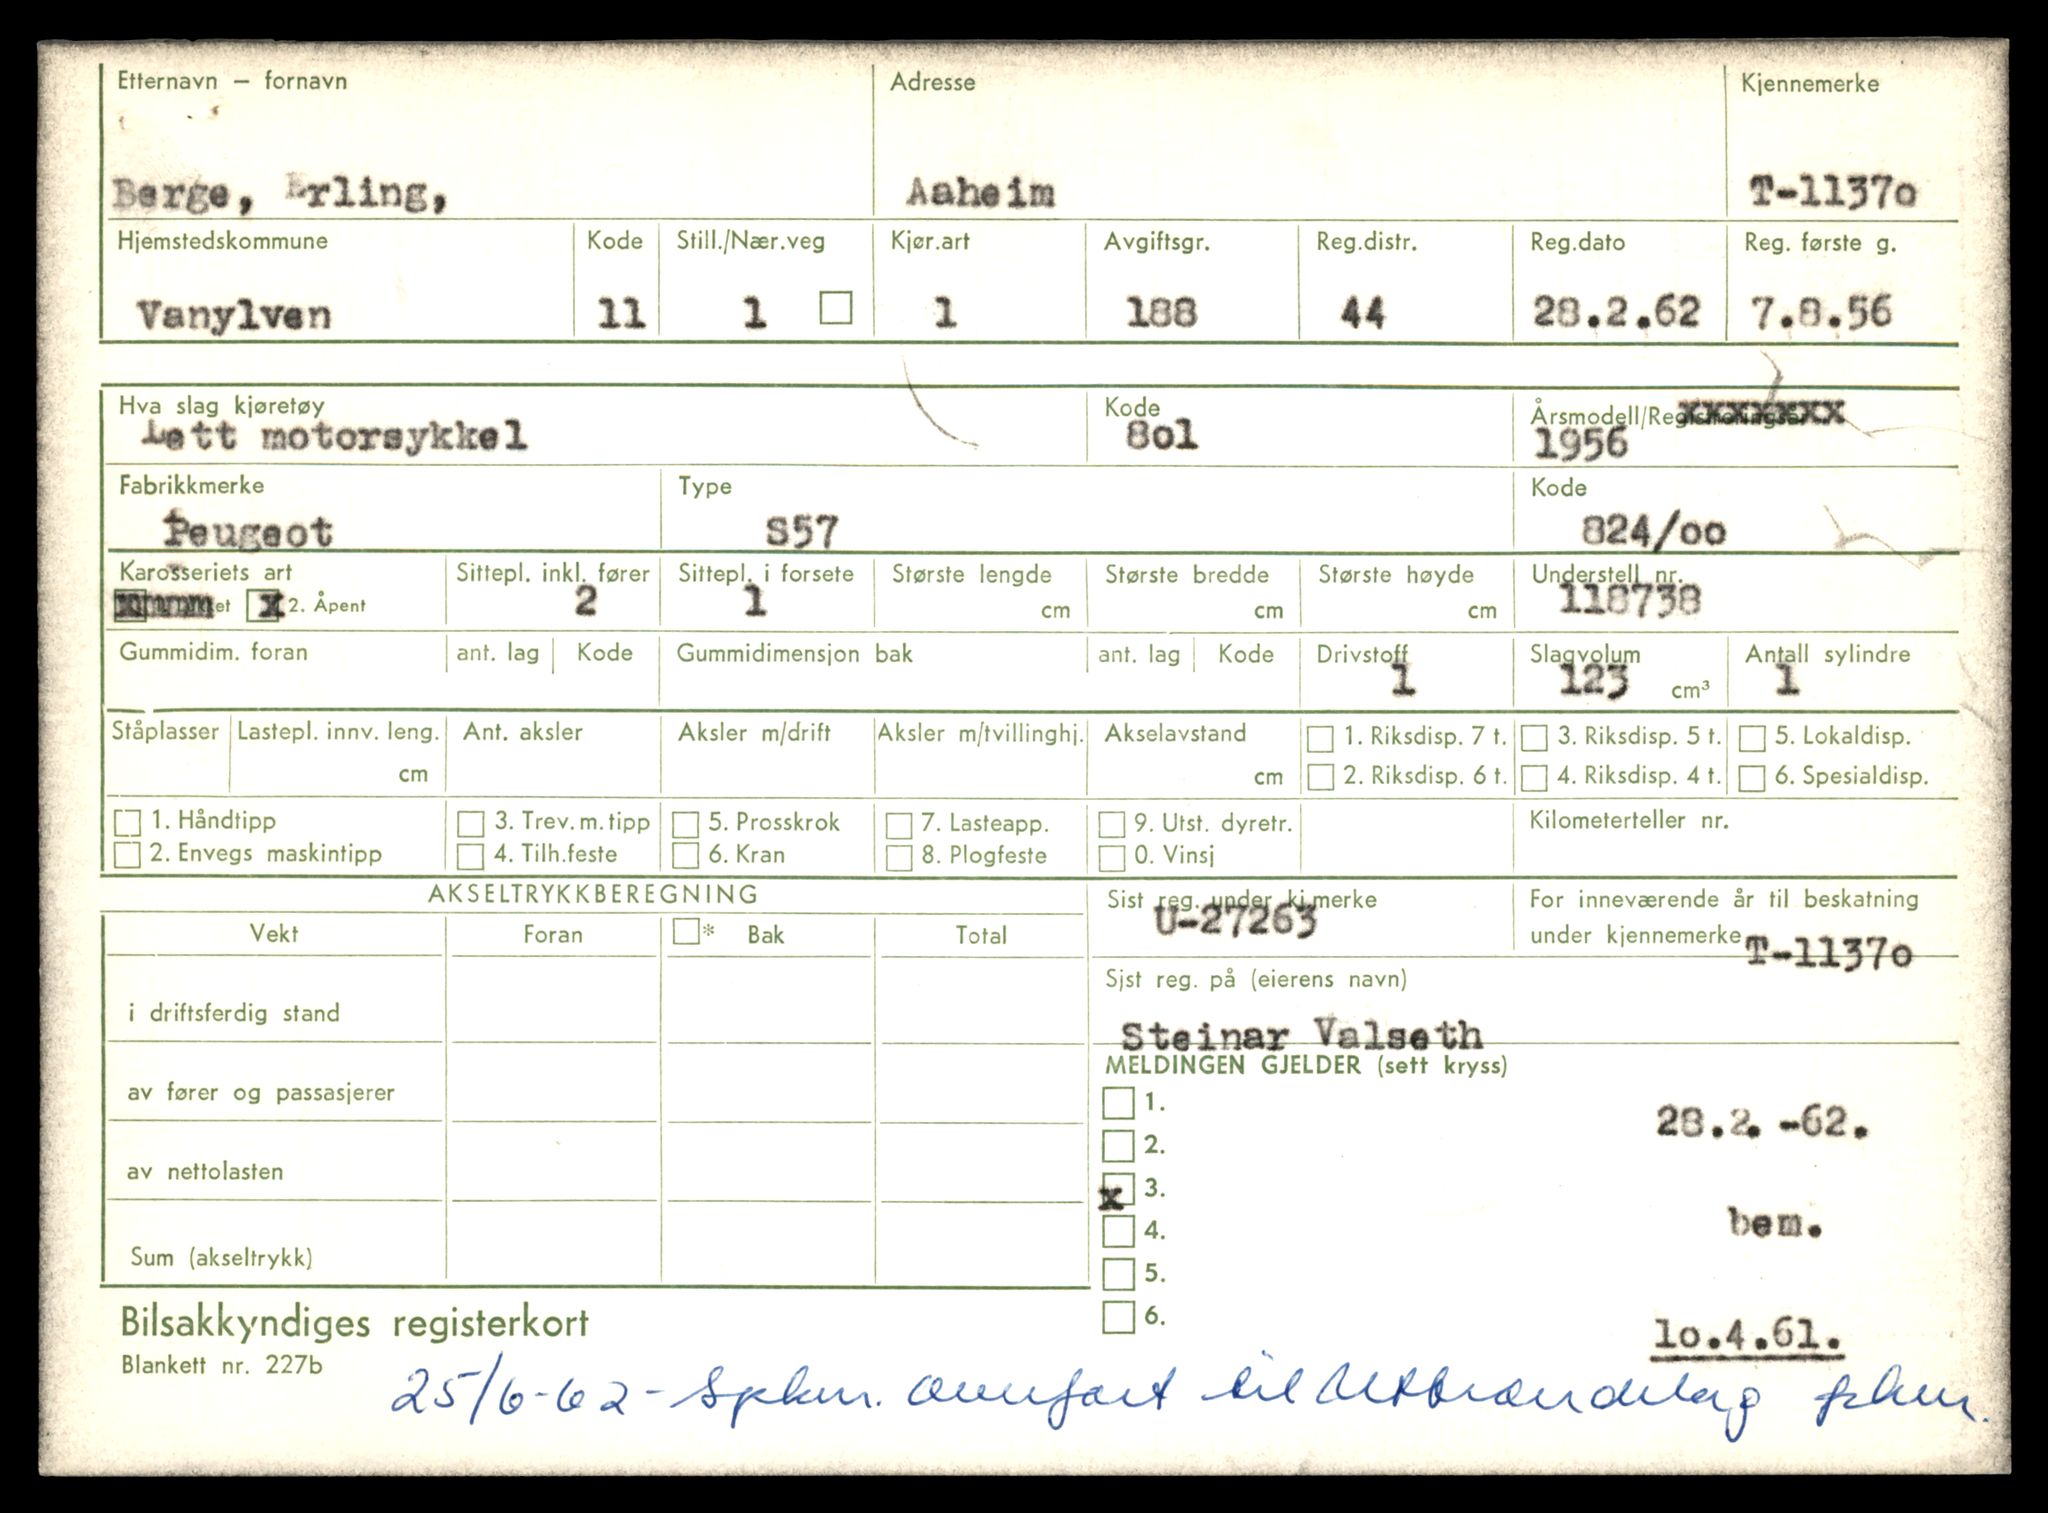 Etternavn – fornavn Adresse Kjennemerke
Berge, Erling, Aaheim T-1137o
Hjemstedskommune Kode Still./Nær.veg Kjør.art Avgiftsgr. Reg.distr. Reg.dato Reg. første g.
Vanylven 11 1 1 188 44 28.2.62 7.8.56
Hva slag kjøretøy Kode Årsmodell/Registreringsår xxxxxxx
Lett motorsykkel 8o1 1956
Fabrikkmerke Type Kode
Peugeot S57 824/oo
Karosseriets art Sittepl. inkl. fører Sittepl. i forsete Største lengde Største bredde Største høyde Understell nr.
x 2. Åpent 2 1 cm cm cm 118738
Gummidim. foran ant. lag Kode Gummidimensjon bak ant. lag Kode Drivstoff Slagvolum Antall sylindre
1 123 cm³ 1
Ståplasser Lastepl. innv. leng. Ant. aksler Aksler m/drift Aksler m/tvillinghj. Akselavstand 1. Riksdisp. 7 t. 3. Riksdisp. 5 t. 5. Lokaldisp.
cm cm 2. Riksdisp. 6 t. 4. Riksdisp. 4 t. 6. Spesialdisp.
1. Håndtipp 3. Trev. m. tipp 5. Prosskrok 7. Lasteapp. 9. Utst. dyretr. Kilometerteller nr.
2. Envegs maskintipp 4. Tilh.feste 6. Kran 8. Plogfeste 0. Vinsj
AKSELTRYKKBEREGNING Sist reg. under kj.merke For inneværende år til beskatning
Vekt Foran * Bak Total U-27263 under kjennemerke T-1137o
Sist reg. på (eierens navn)
i driftsferdig stand Steinar Valseth
MELDINGEN GJELDER (sett kryss)
av fører og passasjerer 1. 28.2.-62.
2.
av nettolasten x 3.
4. bem.
Sum (akseltrykk) 5.
6.
Bilsakkyndiges registerkort 1o.4.61.
Blankett nr. 227b
25/6-62 - Spkm. til